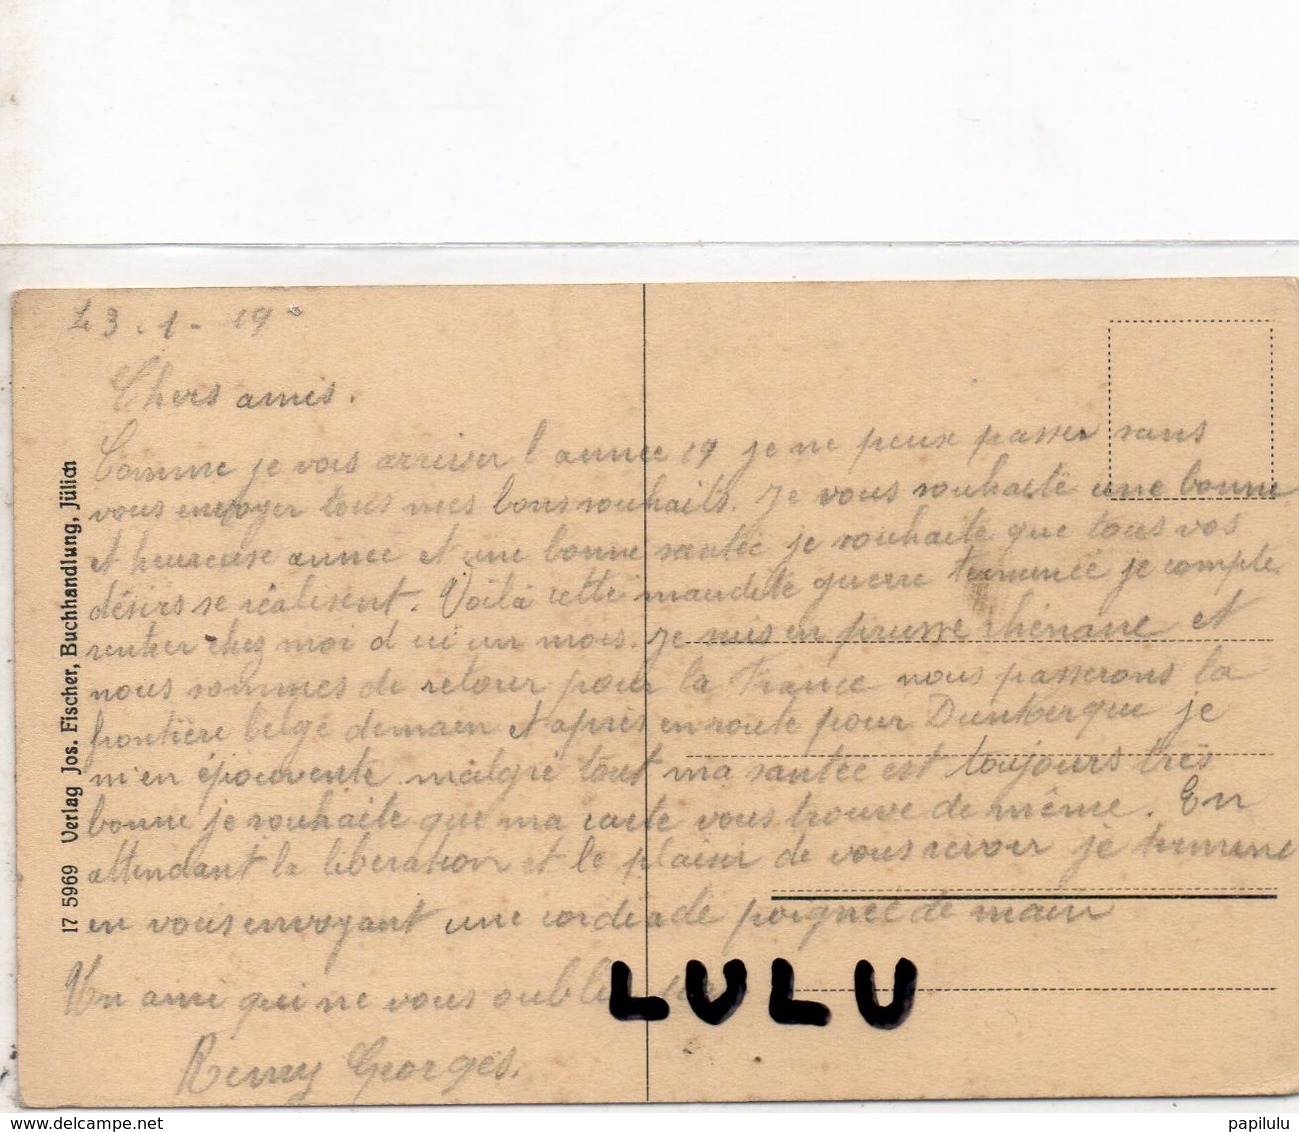 23-1-19
Chers amis.
Comme je vois arriver l année 19 je ne peux passer sans
vous envoyer tous mes bons souhaits. Je vous souhaite une bonne
et heureuse année et une bonne santée je souhaite que tous vos
désirs se réalisent. Voilà cette maudite guerre terminée je compte
rentrer chez moi d ici un mois. Je suis en prusse rhénane et
nous sommes de retour pour la France nous passerons la
frontière belge demain et après en route pour Dunkerque je
m'en épouvente malgré tout ma santée est toujours très
bonne je souhaite que ma carte vous trouve de même. En
attendant la libération et le plaisir de vous revoir je termine
en vous envoyant une cordiade poignée de main
Un ami qui ne vous oublie
Remy Georges.
17 5969 Verlag Jos. Fischer, Buchhandlung, Jülich
LULU
delcampe.net
papilulu